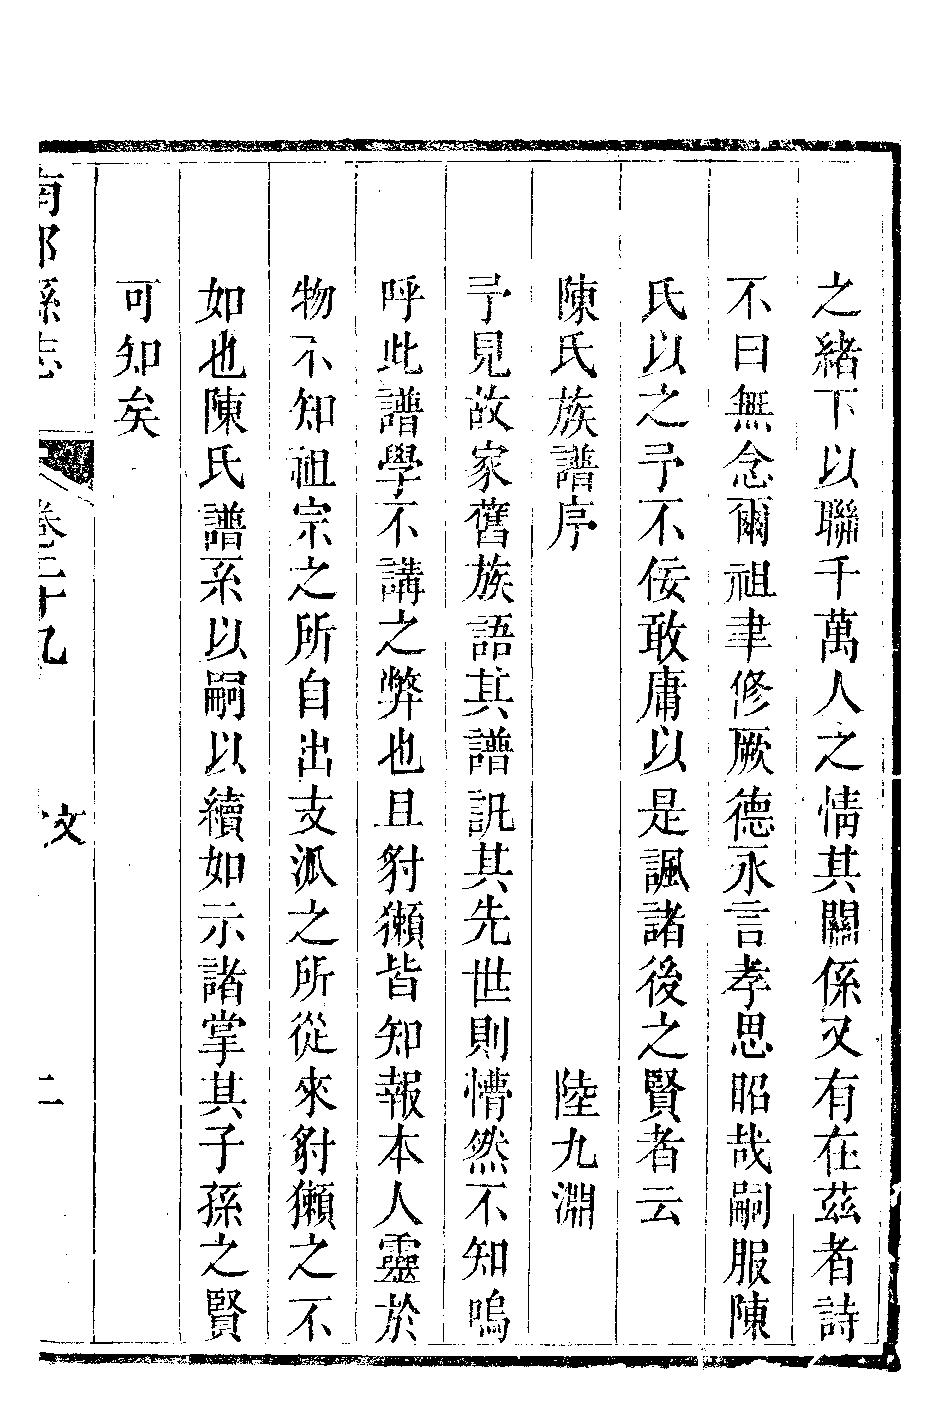 之緒下以聯千萬人之情其關係又有在茲者詩
不曰無念爾祖聿修厥德永言孝思昭哉嗣服陳
氏以之予不佞敢庸以是諷諸後之賢者云
陳氏族譜序　陸九淵
予見故家舊族語其譜訊其先世則懵然不知嗚
呼此譜學不講之弊也且豺獺皆知報本人靈於
物不知祖宗之所自出支派之所從來豺獺之不
如也陳氏譜系以嗣以續如示諸掌其子孫之賢
可知矣
南部縣志　卷二十九　文　二